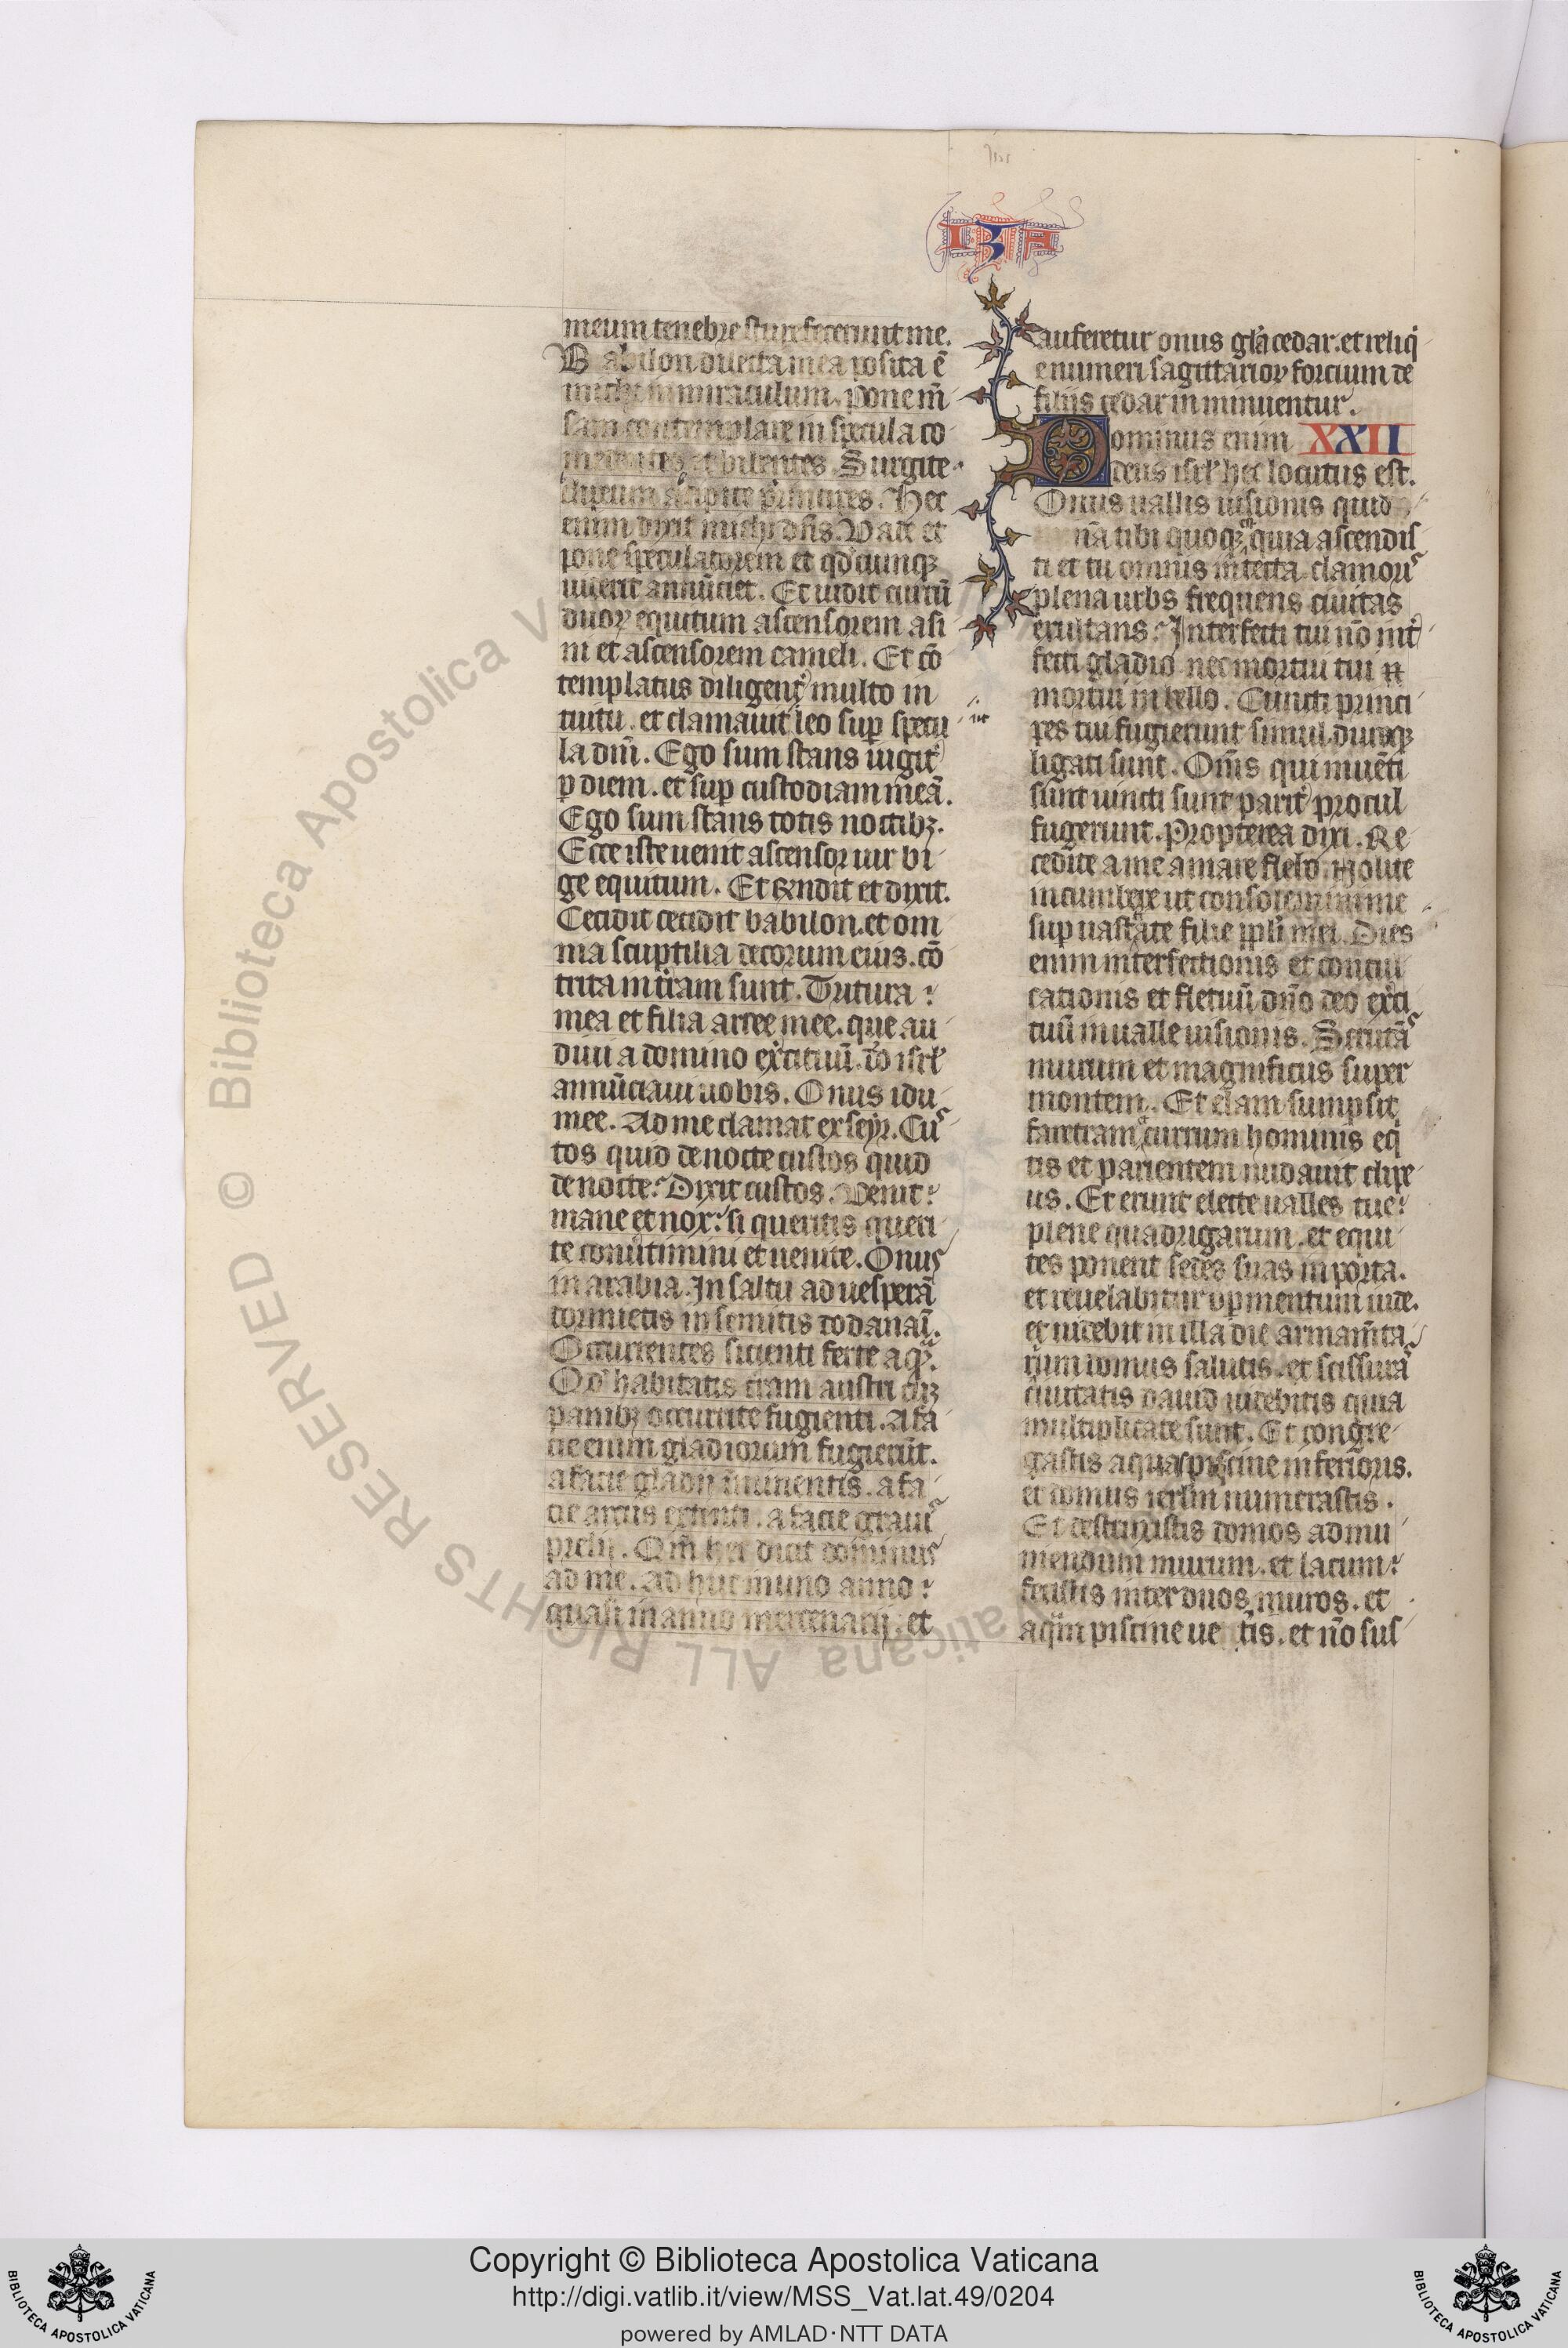 ISA
meum tenebre stupefecerunt me.
Babilon dilecta mea posita ē
michi in miraculum. Pone m̄
sam contemplare in specula co
medentes et bibentes. Surgite
clipeum
enim dixit michi dn̄s. Vade et
pone speculatorem et qđcunqꝫ
viderit annūciet. Et vidit currū
duoꝝ equitum ascensorem asi
ni et ascensorem cameli. Et cō
templatus diligent᷑ multo in
tuitu. et clamavit leo suꝑ specu
la dn̄i. Ego sum stans iugit᷑
ꝑ diem. et suꝑ custodiam meā.
Ego sum stans totis noctibꝫ.
Ecce iste venit ascensor vir bi
ge equitum. Et rn̄dit et dixit.
Cecidit cecidit babilon. et om
nia sculptilia deorum eius. cō
trita in t᷑ram sunt. Tritura
mea et filia aree mee. que au
divi a domino ex᷑cituū. deo isrl̄
annūciavi vobis. Onus idu
mee. Ad me clamat ex seyr. Cus
tos quid de nocte custos quid
de nocte? Dixit custos. Venit
mane et nox. si queritis queri
te conv᷑timini et venite. Onus
in arabia. In saltu ad vesperā
dormietis in semitis dodanaī.
Occurrentes sicienti ferte aquā.
Qđ habitatis t᷑ram austri cū
panibꝫ occurrite fugienti. A fa
cie enim gladiorum fugierūt.
a facie gladij īminentis. a fa
cie arcus extenti. a facie gravis
prelij. Qm̄ hec dicit dominus
ad me. Ad huc in uno anno
quasi in anno mercenarij. et
auferetur onus gl̄a cedar. et reliqⁱ
e numeri sagittarioꝝ forcium de
filijs cedar in minuentur.
Dominus enim XXII
deus isrl̄ hec locutus est.
Onus vallis visionis quid
nā tibi quoqꝫ est quia ascendis
ti et tu omnis in tecta. clamoris
plena urbs frequens civitas
exultans. Interfecti tui nō int᷑
fecti gladio nec mortui tui n̄
mortui in bello. Cuncti princi
pes tui fugierunt simul. dureqꝫ
ligati sunt. Om̄s qui inuēti
sunt vincti sunt parit᷑ procul
fugerunt. Propterea dixi. Re
cedite a me amare flebo. Nolite
incumbere ut consolemini me
suꝑ vastitate filie ppl̄i mei. Dies
enim interfectionis et concul
cationis et fletuū dn̄o deo ex᷑ci
tuū in valle visionis. Scrutās
murum et magnificus super
montem. Et elam sumpsit
faretram currum hominis eq̄
tis et parientem nudavit clipe
us. Et erunt electe valles tue
plene quadrigarum. et equi
tes ponent sedes suas in porta.
et revelabitur opimentum iude.
et videbit in illa die armam̄ta
rium domus salutis. et scissuras
civitatis david videbitis quia
multiplicate sunt. Et congre
gastis aquas piscine inferioris.
et domus ierl̄m numerastis.
Et destruxistis domos ad mu
niendum murum. et lacum
fecistis inter duos muros. et
aqūm piscine ve tis. et nō sus
© Biblioteca Apostolica Vaticana ALL RIGHTS RESERVED
Copyright © Biblioteca Apostolica Vaticana
http://digi.vatlib.it/view/MSS_Vat.lat.49/0204
powered by AMLAD·NTT DATA
BIBLIOTECA APOSTOLICA VATICANA
BIBLIOTECA APOSTOLICA VATICANA